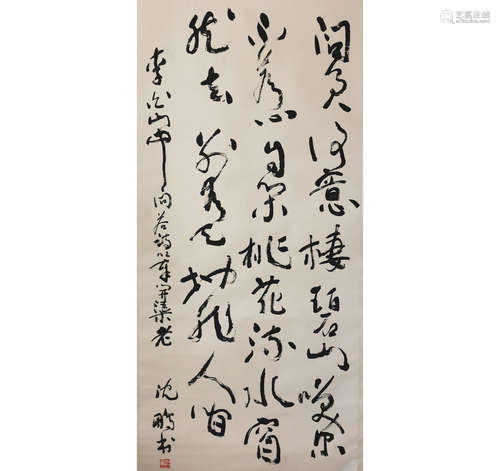 问君何意栖碧山笑而
不答心自闲桃花流水窅
然去别有天地非人间
李白山中问答诗以奉
沈鹏书
艺拓在线